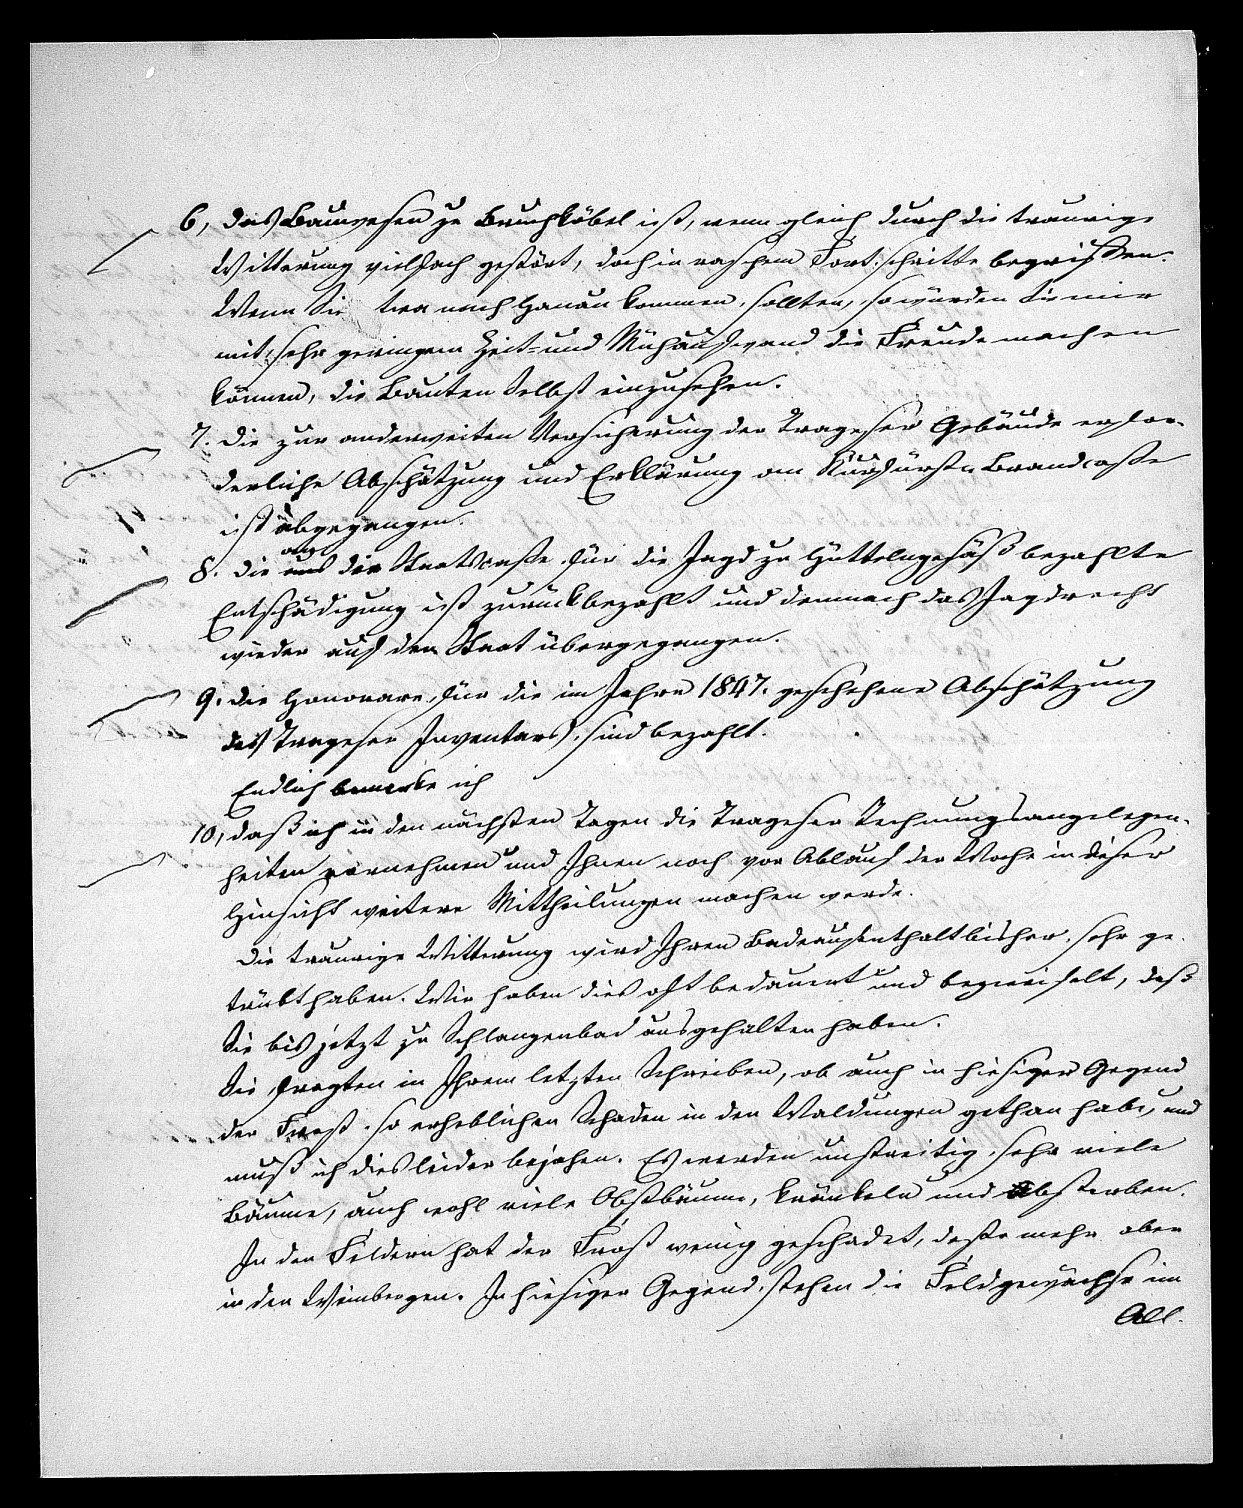 6, das Bauwesen zu Bruchköbel ist, wenn gleich durch die traurige
Witterung vielfach gestört, doch in raschem Fortschritte begriffen.
Wenn Sie nach Hanau kommen sollten, so würden Sie mir
mit sehr geringem Zeit- und Mühaufwand die Freude machen
können, die Bauten selbst einzusehen.
7. Die zur anderweiten Versicherung der Trageser Gebäude erfor-
derliche Abschätzung und Erklärung an Kurfürstl. Brandcasse
ist abgegangen.
8. Die aus der Staatscasse für die Jagd zu Hüttelngesäß bezahlte
Entschädigung ist zurückbezahlt und demnach das Jagdrecht
wieder auf den Staat übergegangen.
9. die Honorare für die im Jahre 1847. geschehene Abschätzung
des Trageser Inventars, sind bezahlt.
Endlich bemerke ich
10, daß ich in den nächsten Tagen die Trageser Rechnungsangelegen-
heiten vornehmen und Ihnen noch vor Ablauf der Woche in dieser
Hinsicht weitere Mittheilungen machen werde.
Die traurige Witterung wird Ihren Badeaufenthalt bisher sehr ge-
trübt haben. Wir haben dies oft bedauert und bezweifelt, daß
Sie bis jetzt zu Schlangenbad ausgehalten haben.
Sie fragten in Ihrem letzten Schreiben, ob auch in hiesiger Gegend
der Frost so erheblichen Schaden in den Waldungen gethan habe, und
muß ich dies leider bejahen. Es werden unstreitig sehr viele
Bäume, auch wohl viele Obstbäume, kränkeln und absterben.
In den Feldern hat der Frost wenig geschadet, desto mehr aber
in den Weinbergen. In hiesiger Gegend stehen die Feldgewächse im
All-